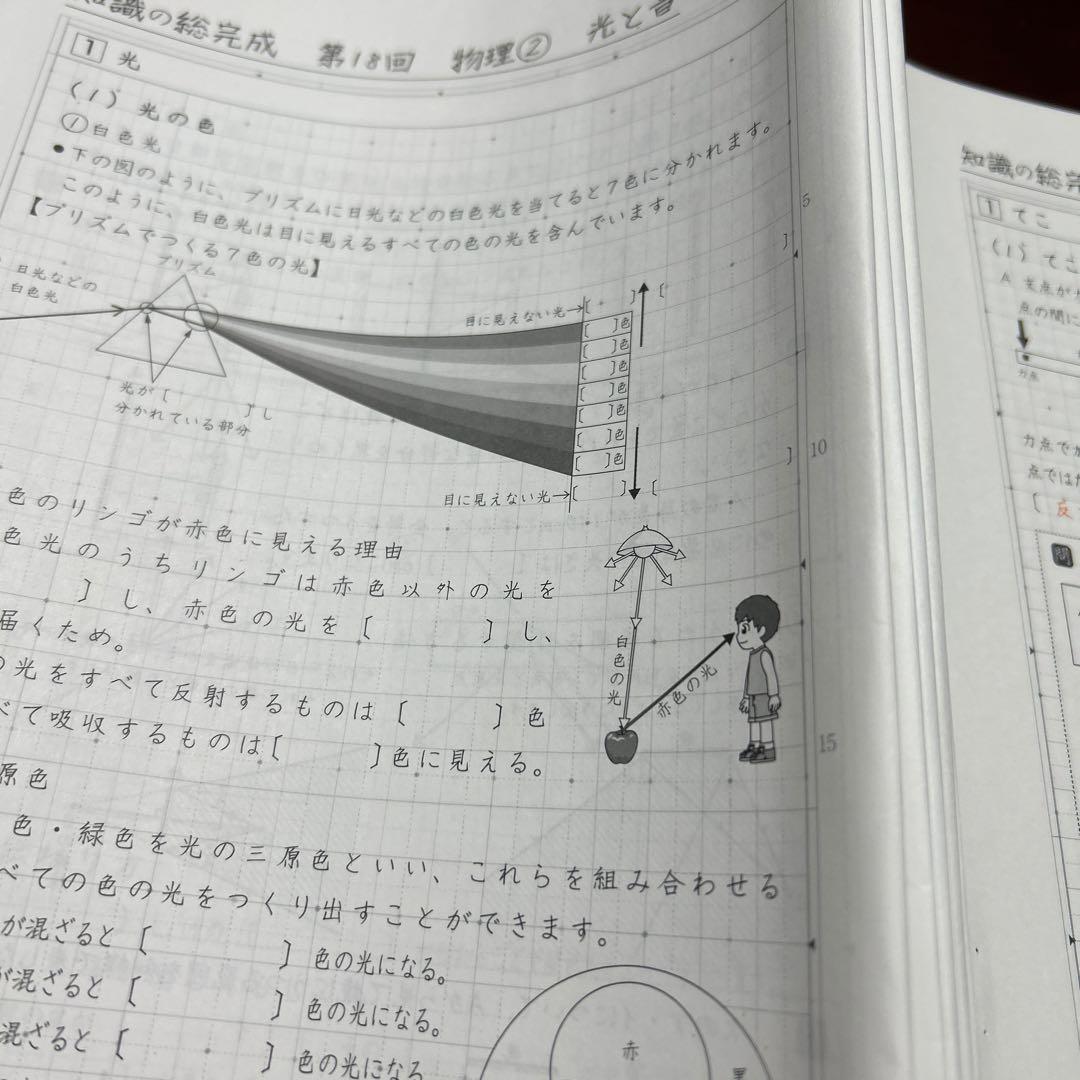 知識の総完成　第18回　物理②　光と音
1 光
(1) 光の色
①白色光
●下の図のように、プリズムに日光などの白色光を当てると7色に分かれます。
このように、白色光は目に見えるすべての色の光を含んでいます。
【プリズムでつくる7色の光】
プリズム
日光などの
白色光
目に見えない光→[　　] [　　　]
[　　]色
[　　]色
[　　]色
[　　]色
[　　]色
[　　]色
[　　]色
目に見えない光→[　　] [　　　]
光が[　　　]し
分かれている部分
色のリンゴが赤色に見える理由
色光のうちリンゴは赤色以外の光を
]し、赤色の光を[　　　]し、
届くため。
の光をすべて反射するものは[　　　]色
べて吸収するものは[　　　]色に見える。
白色の光
赤色の光
原色
色・緑色を光の三原色といい、これらを組み合わせる
べての色の光をつくり出すことができます。
が混ざると[　　　]色の光になる。
が混ざると[　　　]色の光になる。
混ざると[　　　]色の光になる
赤
5
10
15
知識の総完
1 てこ
(1) てこ
A 支点が
点の間に
力点
力点でか
点では
[ 反
問